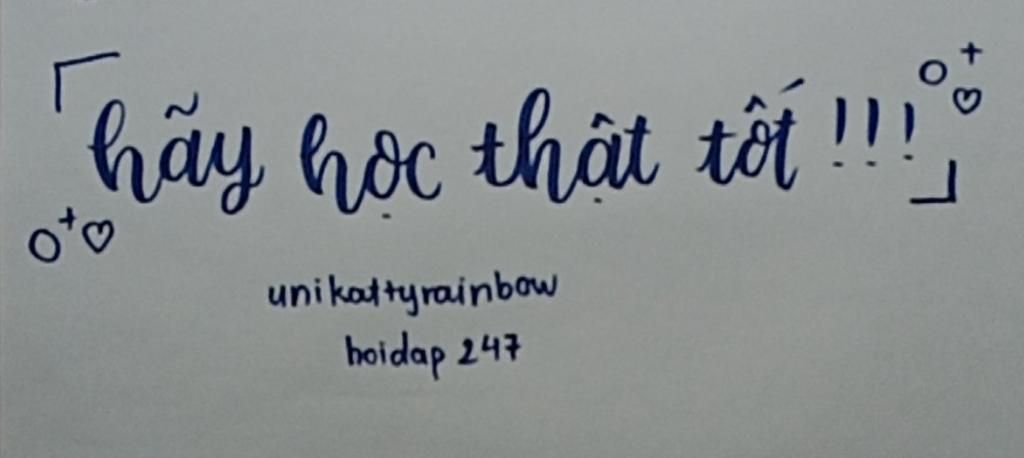 「hãy học thật tốt !!!」
unikattyrainbow
hoidap 247